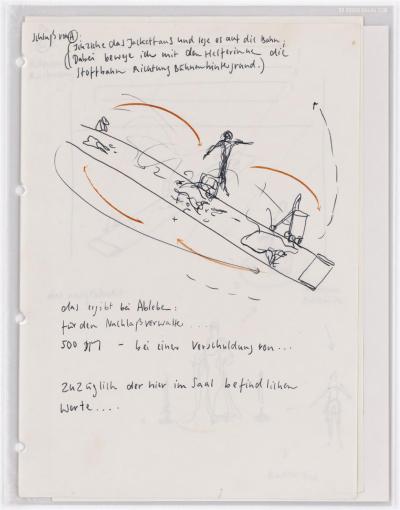 Schluß von (A):
(Ich ziehe das Jackett aus und lege es auf die Bahn;
Dabei bewege ich mit den Helferinnen die
Stoffbahn Richtung Bühnenhintergrund.)
das ergibt bei Ableben:
für den Nachlaßverwalter ....
500 DM - bei einer Verschuldung von...
zuzüglich der hier im Saal befindlichen
Werte....